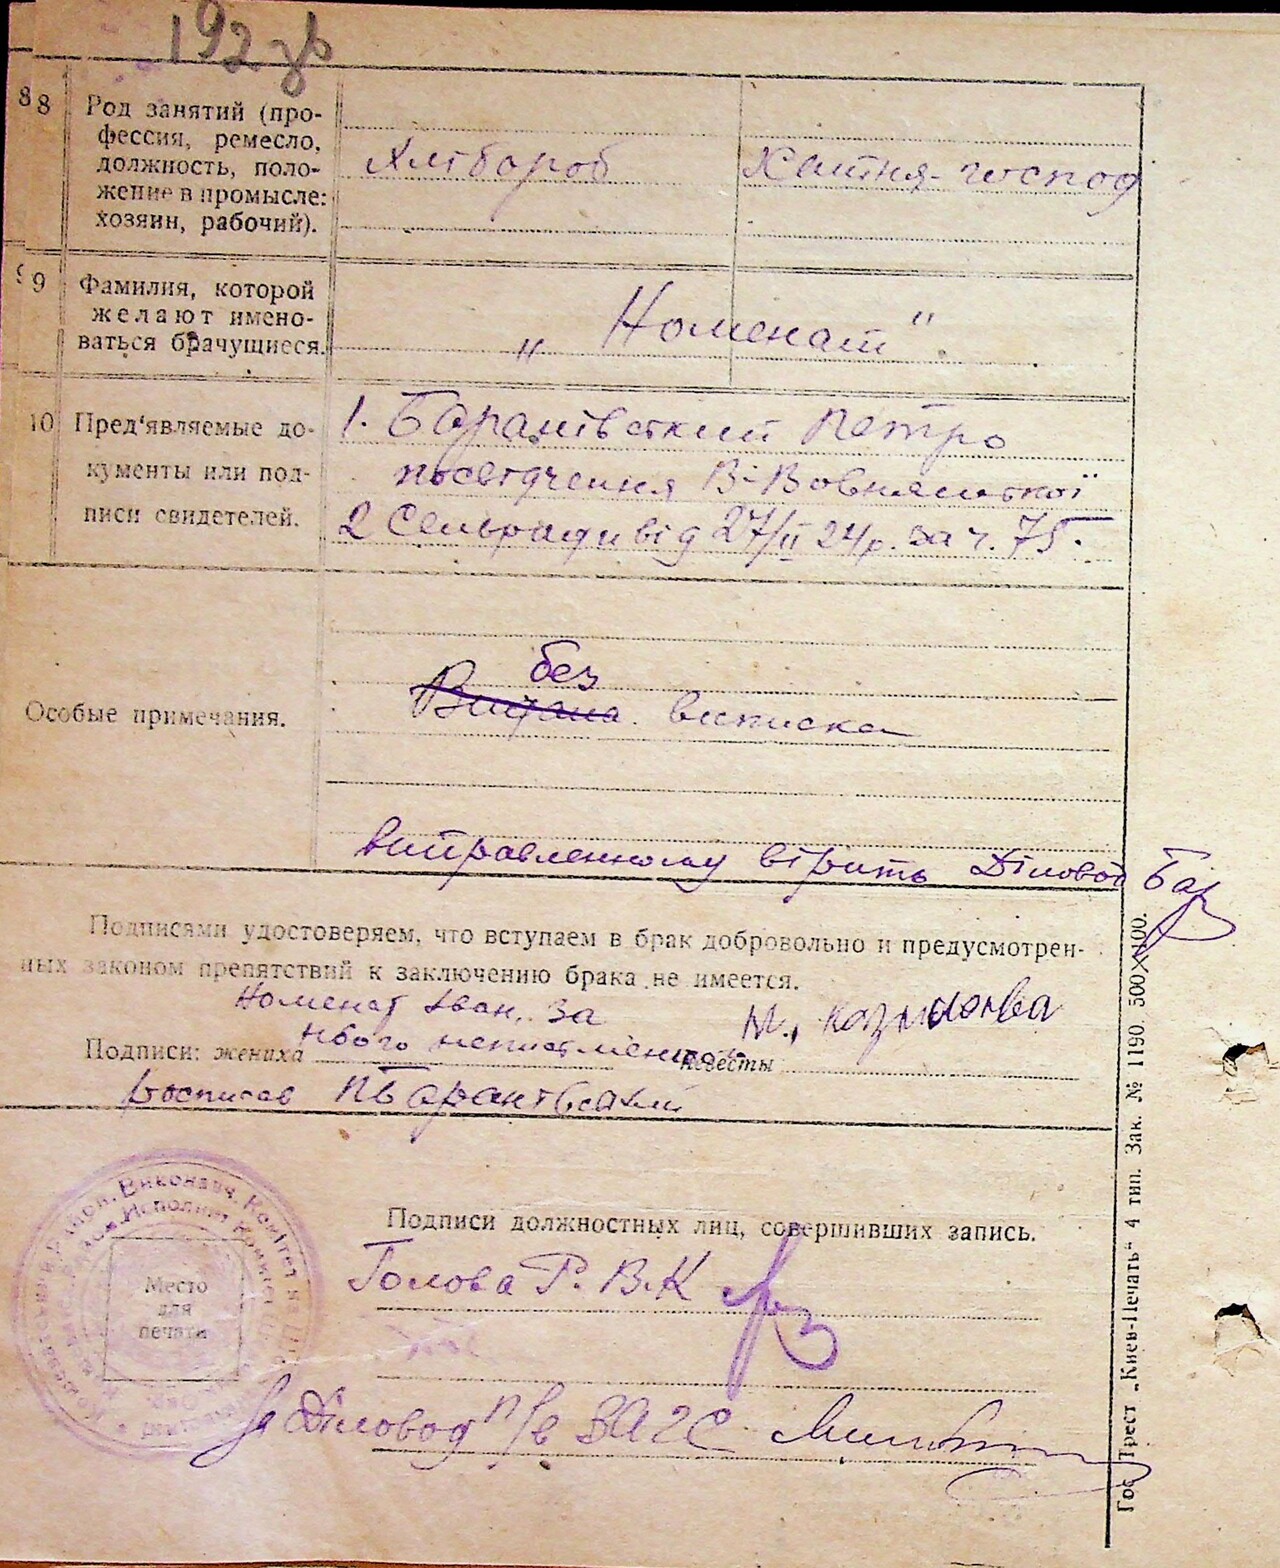 192 зв
8 8 Род занятий (про-
фессия, ремесло,
должность, поло-
жение в промысле:
хозяин, рабочий).
Хлібороб Хатня-господ
9 9 Фамилия, которой
желают имено-
ваться брачущиеся.
„ Номенат".
10 Пред'являемые до-
кументы или под-
писи свидетелей.
1. Баранівський Петро
посвідчення В-Вовнянської
2 Сельради від 27/II 24р. за ч. 75.
Особые примечания.
без
Видана виписка
виправленному вірить Діловод Бар
Подписями удостоверяем, что вступаем в брак добровольно и предусмотрен-
ных законом препятствий к заключению брака не имеется.
Номенат Іван, за М.
нього неписьменного
Подписи: жениха невесты
росписав ПБаранівський
Викон­авч. Комітет
Исполнит. Комитет
Место
для
печати
Подписи должностных лиц, совершивших запись.
Голова Р.В.К
Діловод п/в ЗАГС
Гос. Трест „Киев-Печать" 4 тип. Зак. № 1190. 500×100.